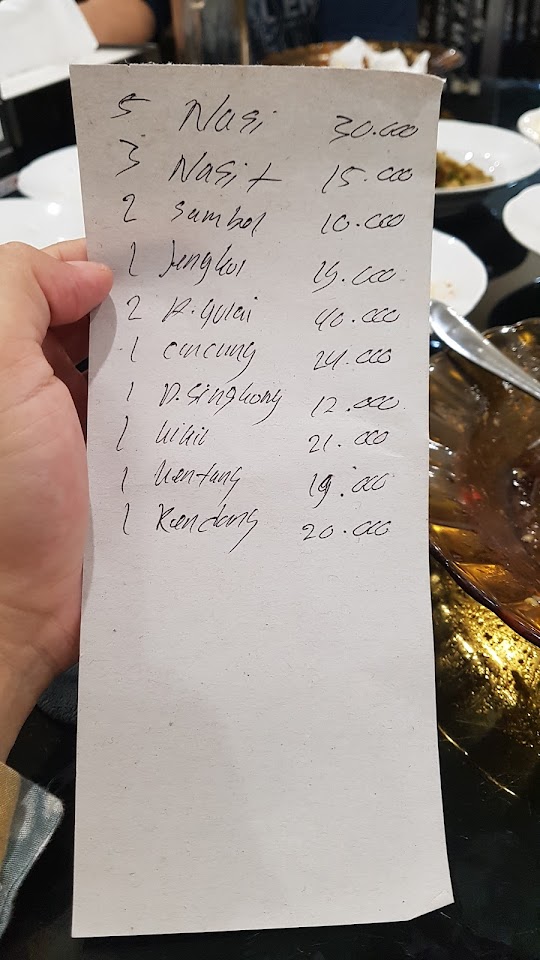 5 Nasi 30.000
3 Nasi + 15.000
2 Sambol 10.000
1 Jengkol 19.000
2 P. gulai 40.000
1 cincang 24.000
1 D. Singkong 12.000
1 kikil 21.000
1 kentang 19.000
1 Rendang 20.000